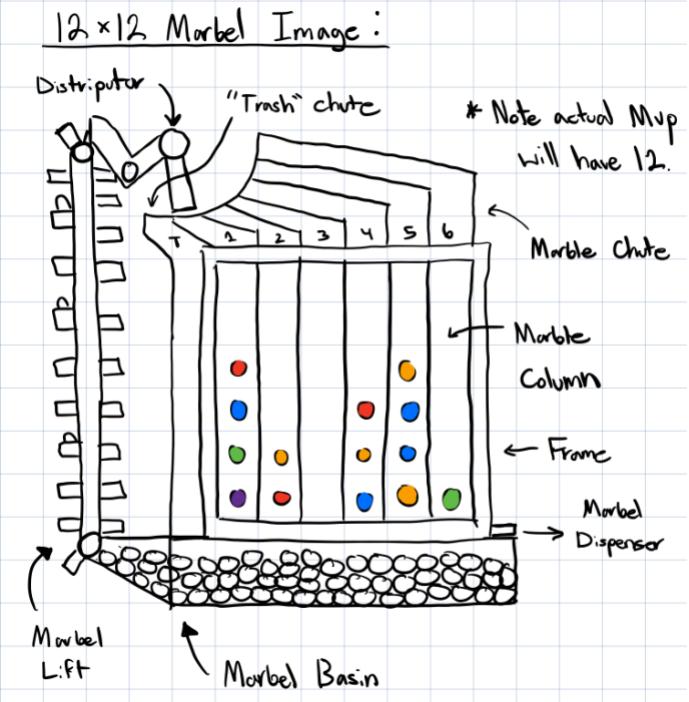 12 × 12 Marbel Image :
Distriputor
"Trash" chute
* Note actual Mvp
will have 12.
T 1 2 3 4 5 6
Marble Chute
Marble
Column
Frame
Marbel
Dispensor
Marbel
Lift
Marbel Basin